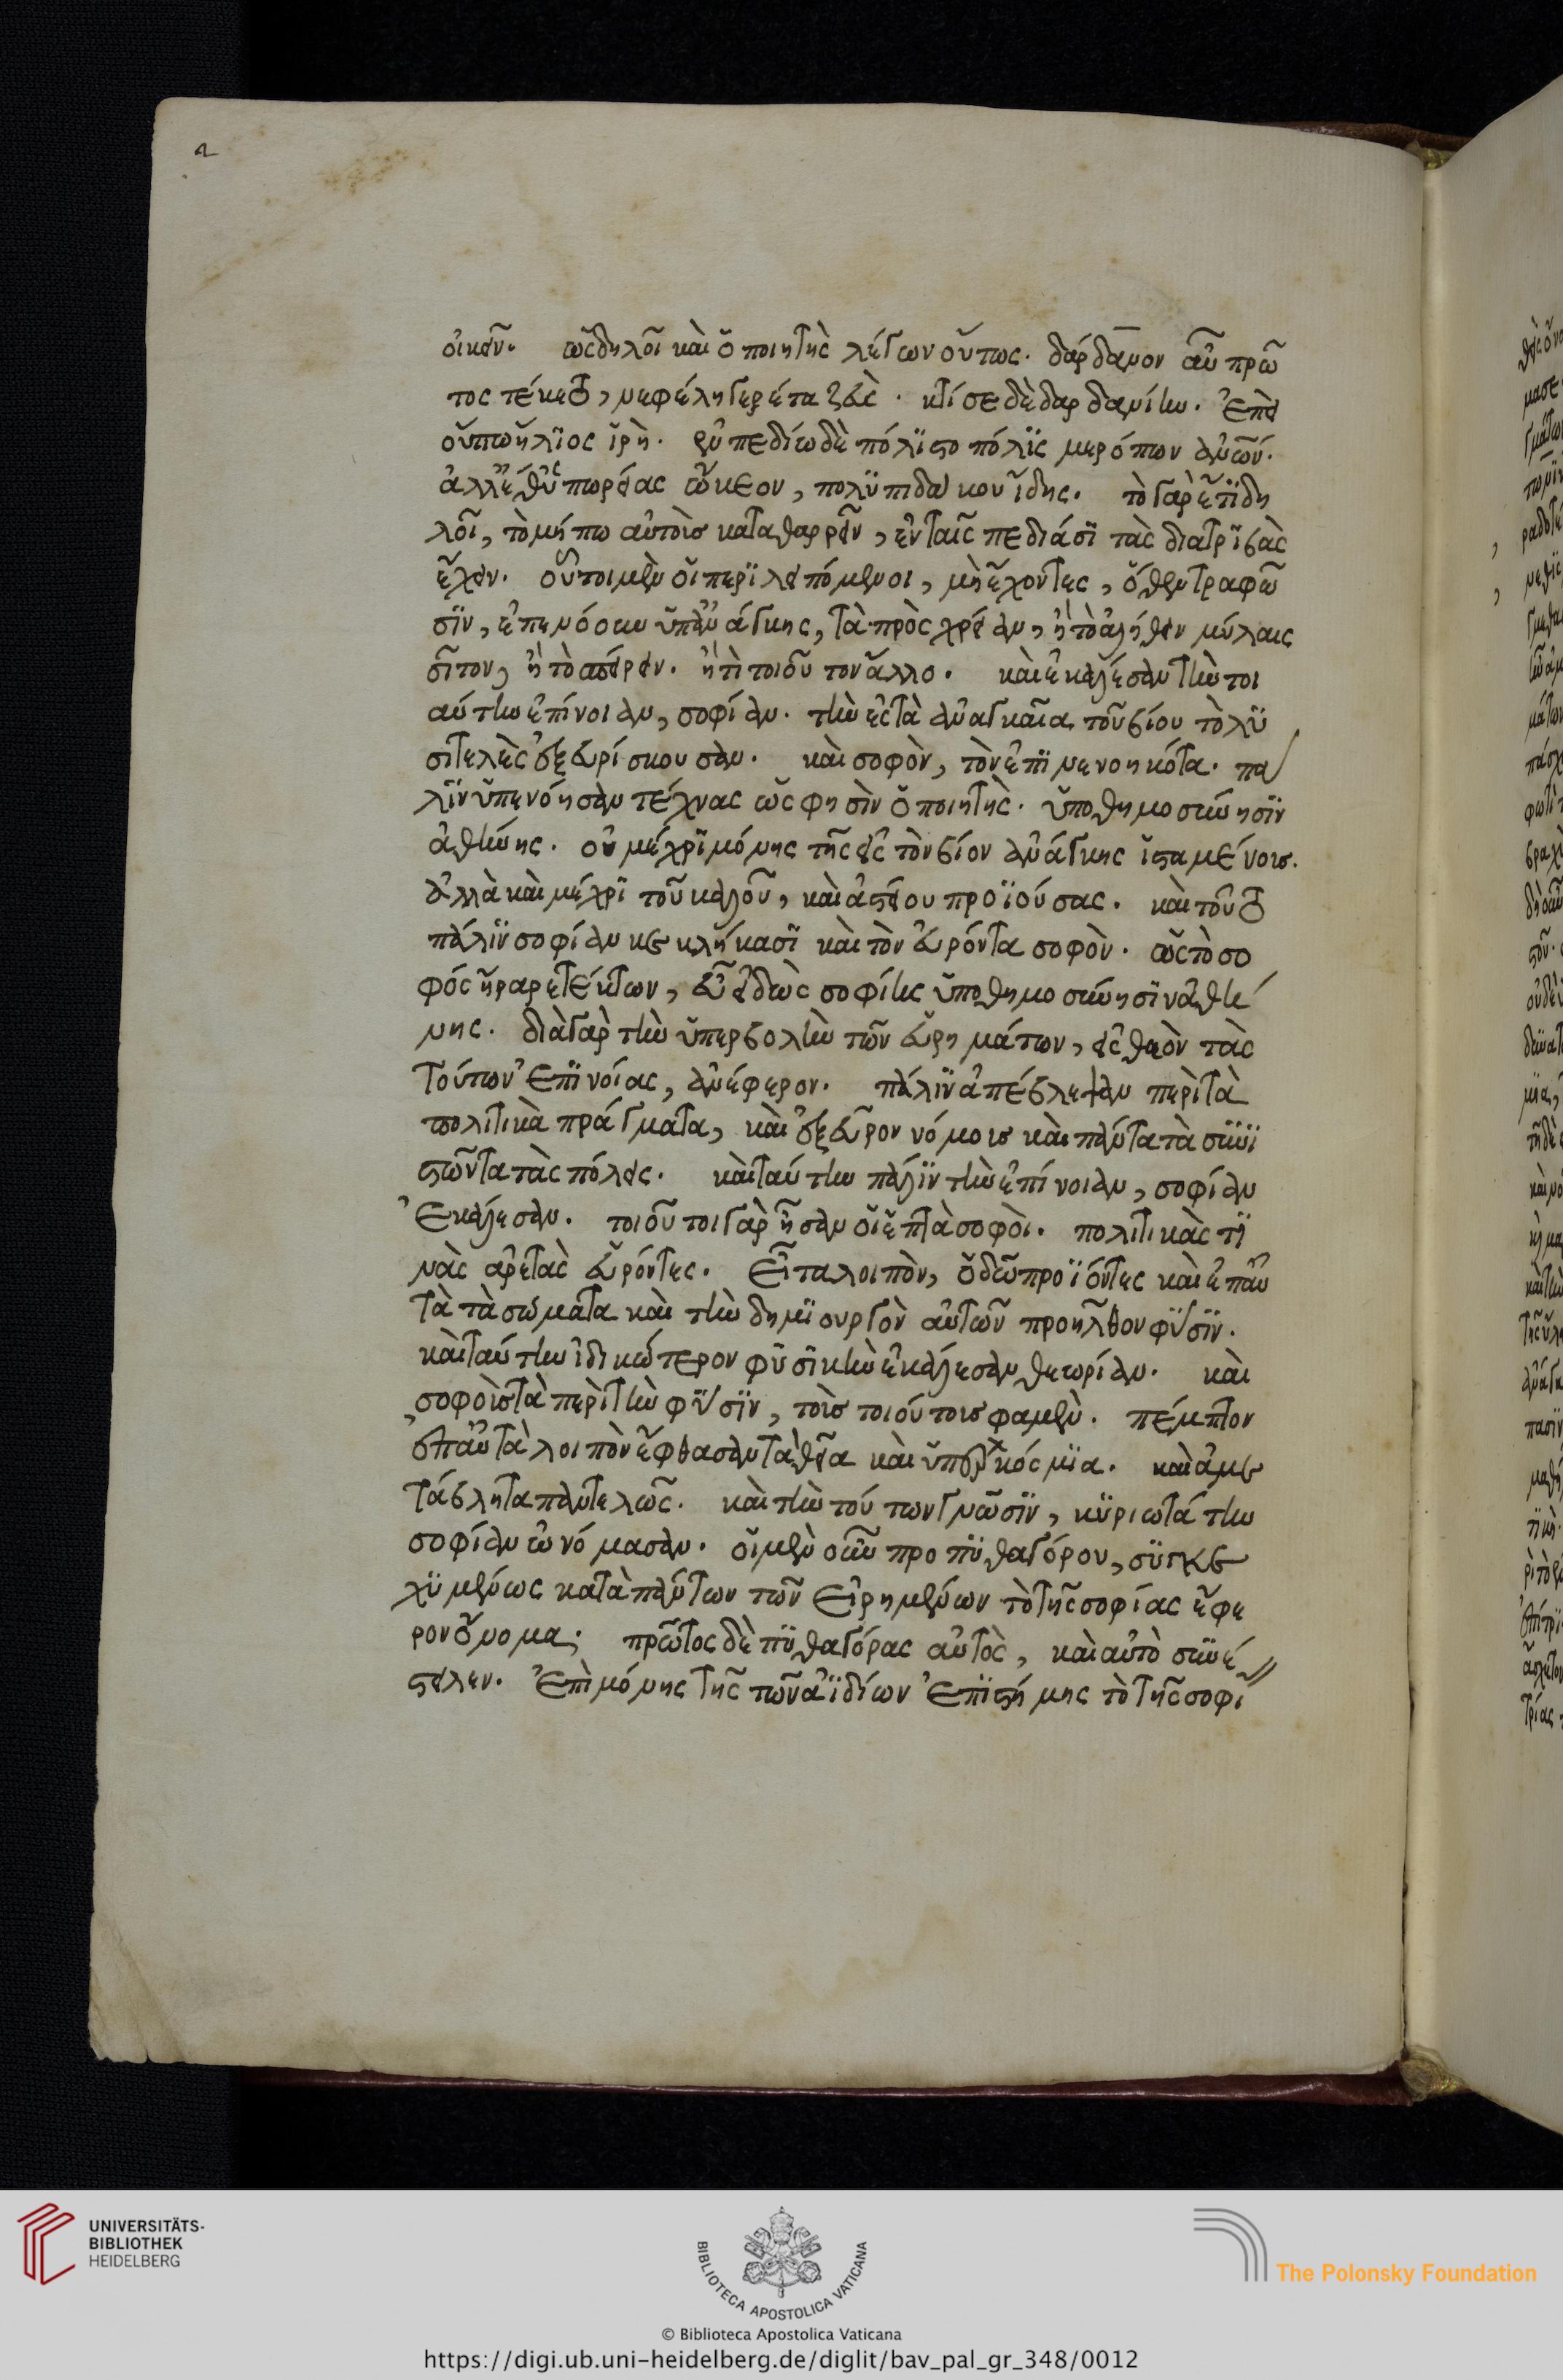 2
οἰκεῖν. ὡς δηλοῖ καὶ ὁ ποιητὴς λέγων οὕτως. δάρδανον αὖ πρῶ
τος τέκετο, νεφεληγερέτα ζεὺς. κτίσε δὲ δαρδανίην. ἐπεὶ
οὔπω ἥλϊος ἵρὴ. ἐν πεδίω δὲ πόλϊστο πόλϊς μερόπων ἀνῶν.
ἀλλ' ἔθ' ὑπωρείας ὤκεον, πολϋπιδάκου ἴδης. τὸ γὰρ ἔτϊ δη
λοῖ, τὸ μήπω αὐτοῖς καταθαρρεῖν, ἐν ταῖς πεδιάσϊ τὰς διατρϊβὰς
ἔχειν. οὗτοι μὲν οἱ περϊλειπόμενοι, μὴ ἔχοντες, ὅθεν τραφῶ
σϊν, ἐπενόουν ὑπ' ἀνάγκης, τὰ πρὸς χρείαν, ἢ τὸ ἀλήθειν μύλαις
σῖτον, ἢ τὸ σπείρειν. ἤ τὶ τοιοῦτον ἄλλο. καὶ ἐκάλεσαν τὴν τοι
αύτην ἐπίνοιαν, σοφίαν. τὴν ἐς τὰ ἀναγκαῖα τοῦ βίου τὸ λϋ
σιτελὲς ἐξευρίσκουσαν. καὶ σοφὸν, τὸν ἐπϊνενοηκότα. πά
λϊν ὑπενόησαν τέχνας ὥς φησὶν ὁ ποιητὴς. ὑποθημοσύνησϊν
ἀθήνης. οὐ μέχρϊ μόνης τῆς εἰς τὸν βίον ἀνάγκης ἱσταμένοις.
ἀλλὰ καὶ μέχρϊ τοῦ καλοῦ, καὶ ἀστείου προϊούσας. καὶ τοῦτο
πάλϊν σοφίαν κεκλήκασϊ καὶ τὸν εὑρόντα σοφὸν. ὡς τὸ σο
φός ἤραρε τέκτων, εὖ εἰδὼς σοφίης ὑποθημοσύνησϊν ἀθή
νης. διὰ γὰρ τὴν ὑπερβολὴν τῶν εὑρημάτων, εἰς θεὸν τὰς
τούτων ἐπϊνοίας, ἀνέφερον. πάλϊν ἀπέβλεψαν περὶ τὰ
πολιτικὰ πράγματα, καὶ ἐξεῦρον νόμοις καὶ πάντα τὰ συνϊ
στῶντα τὰς πόλεις. καὶ ταύτην πάλϊν τὴν ἐπίνοιαν, σοφίαν
ἐκάλεσαν. τοιοῦτοι γὰρ ἦσαν οἱ ἑπτὰ σοφοὶ. πολιτικὰς τϊ
νὰς ἀρετὰς εὑρόντες. Εἶτα λοιπὸν, ὁδῶ προϊόντες καὶ ἐπ' αὐ
τὰ τὰ σώματα καὶ τὴν δημϊουργὸν αὐτῶν προῆλθον φϋσϊν.
καὶ ταύτην ἰδικώτερον φϋσϊκὴν ἐκάλεσαν θεωρίαν. καὶ
σοφοὺς τὰ περὶ τὴν φϋσϊν, τοὺς τοιούτους φαμὲν. πέμπτον
ἐπ' αὐτὰ λοιπὸν ἔφθασαν τὰ θεῖα καὶ ὑπερκόσμϊα. καὶ ἀμε
τάβλητα παντελῶς. καὶ τὴν τούτων γνῶσϊν, κϋριωτάτην
σοφίαν ὠνόμασαν. οἱ μὲν οὖν προ πϋθαγόρου, σϋγκε
χϋμένως κατὰ πάντων τῶν εἰρημένων τὸ τῆς σοφίας ἔφε
ρον ὄνομα· πρῶτος δὲ πϋθαγόρας αὐτὸς, καὶ αὐτὸ συνέ
στειλεν. ἐπὶ μόνης τῆς τῶν ἀϊδίων ἐπϊστήμης τὸ τῆς σοφί
UNIVERSITÄTS-
BIBLIOTHEK
HEIDELBERG
BIBLIOTECA APOSTOLICA VATICANA
The Polonsky Foundation
© Biblioteca Apostolica Vaticana
https://digi.ub.uni-heidelberg.de/diglit/bav_pal_gr_348/0012